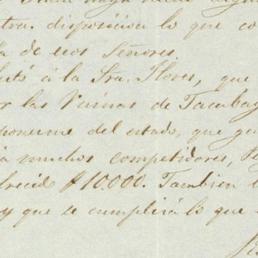 tra. disposicion lo que co
la de esos Señores.
á la Sra. Flores, que
las Ruinas de Tacubay
ponerme del estado, que gu
ia muchos competidores,
frecido $10.000. Tambien
y que se cumplirá lo que